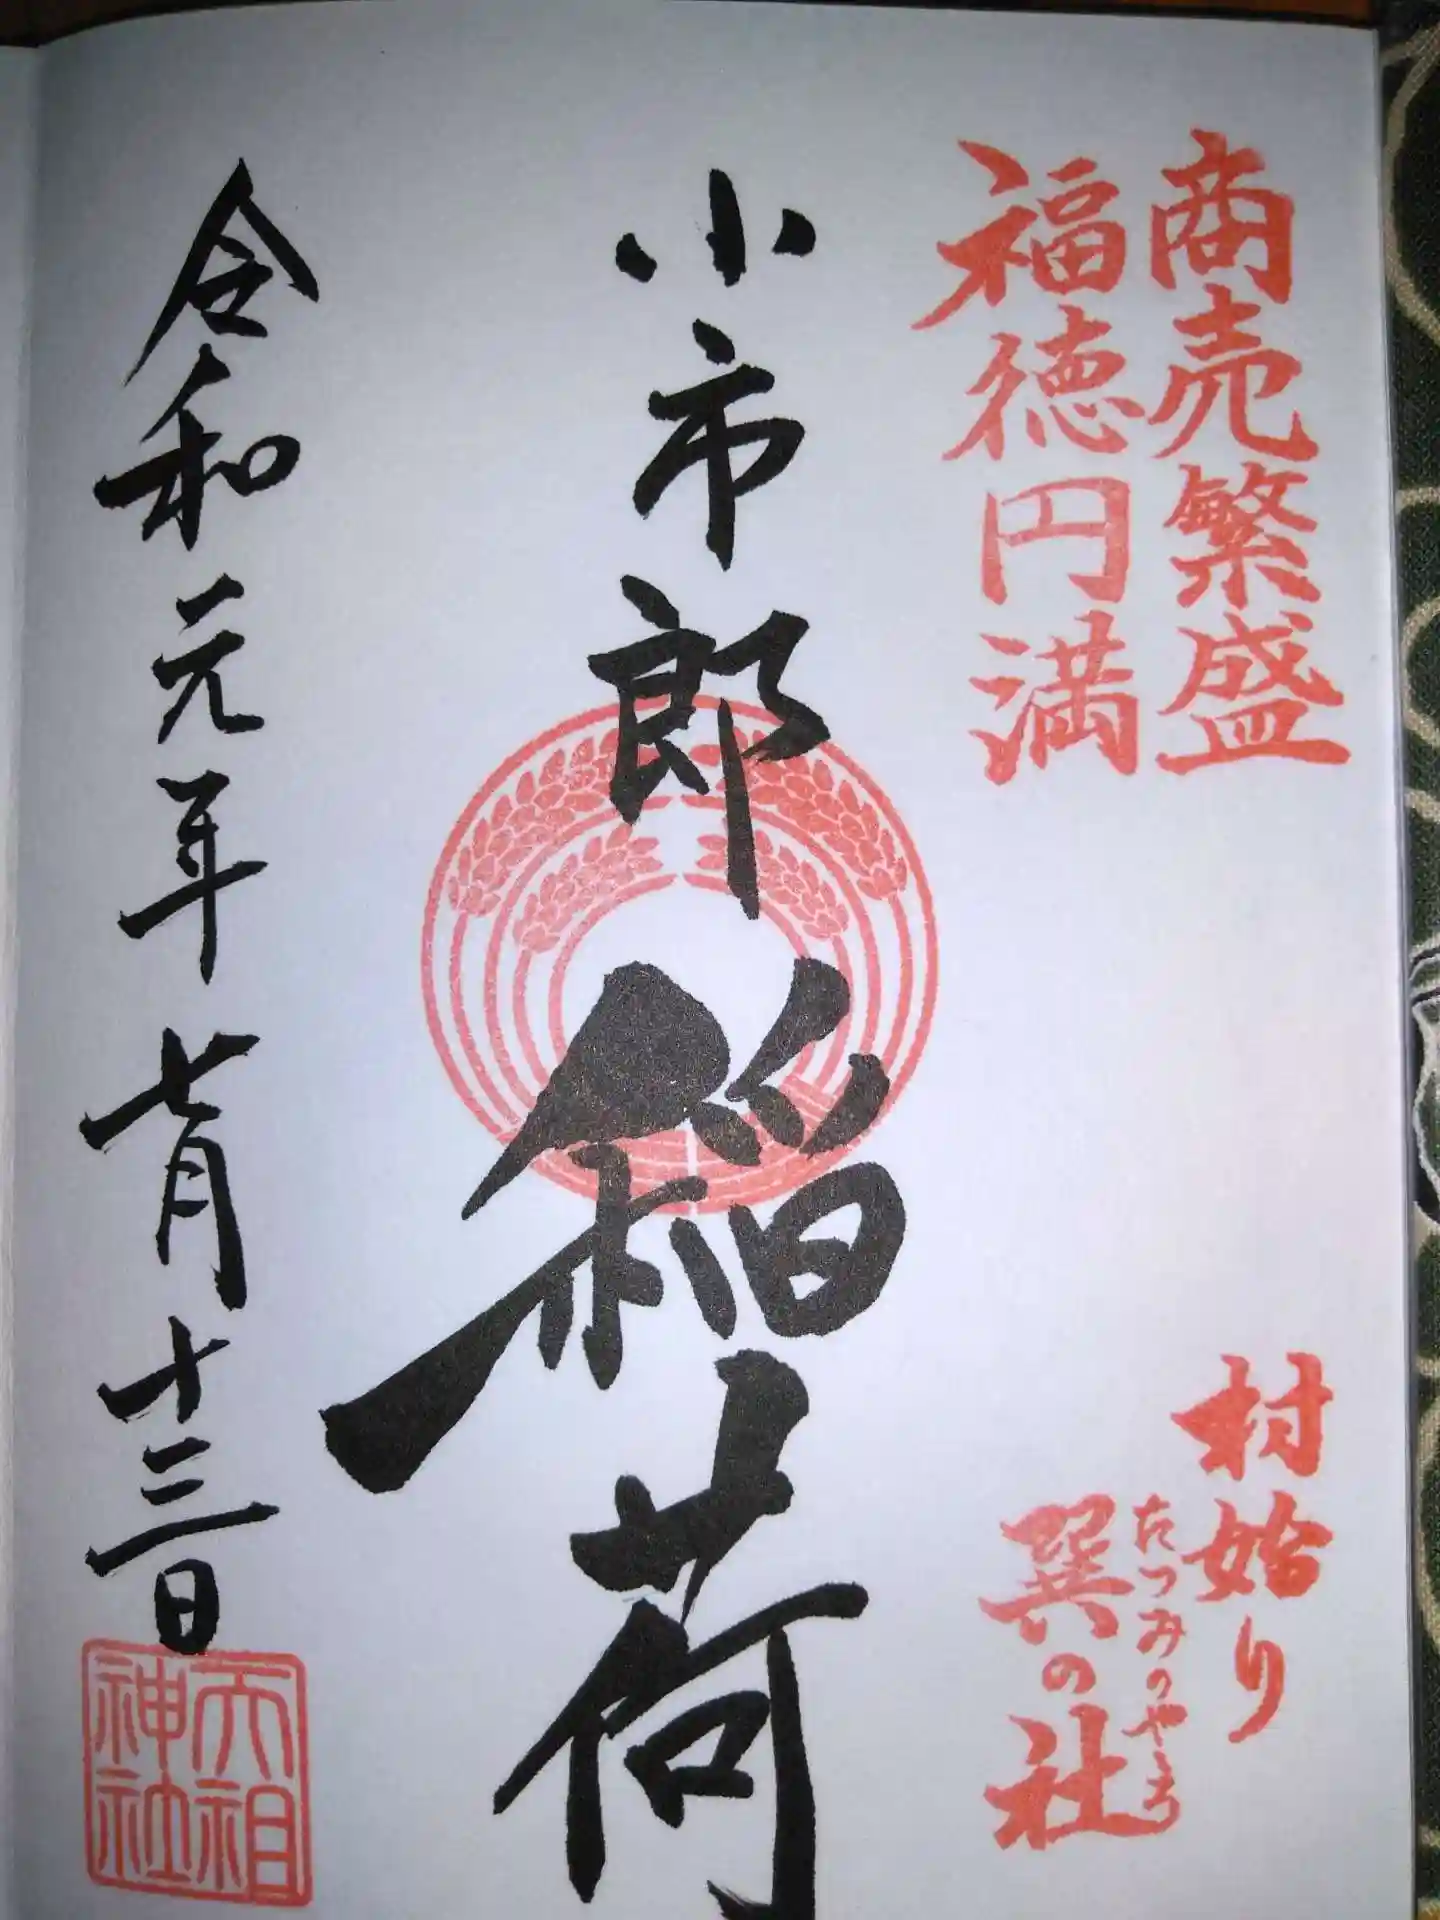 商売繁盛
福徳円満
村始り
たつみのやしろ
巽の社
小市郎稲荷
令和元年七月十三日
天祖
神社